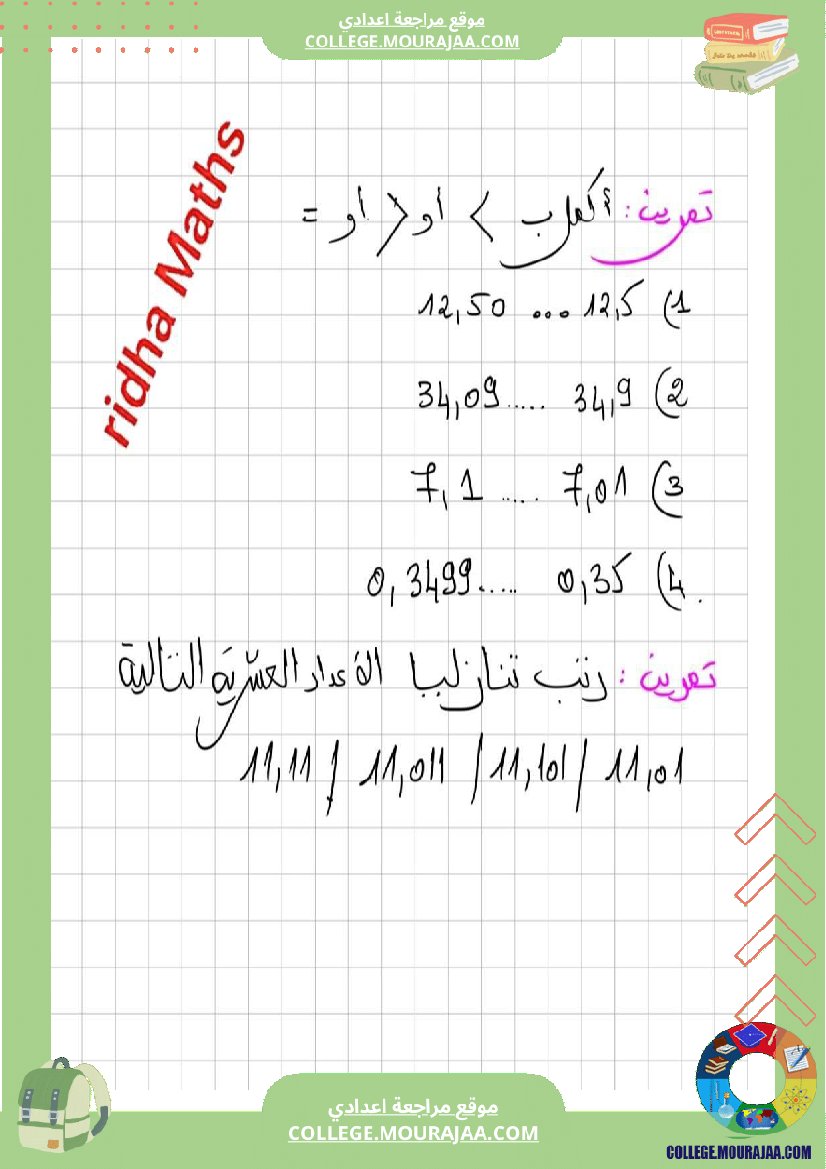 موقع مراجعة اعدادي
COLLEGE.MOURAJAA.COM
ridha Maths
تمرين: أكتب > أو < أو =
1) 12,5 ... 12,50
2) 34,9 ..... 34,09
3) 7,01 ..... 7,1
4) 0,35 ..... 0,3499
تمرين: رتب تنازليا الأعداد العشرية التالية
11,01 / 11,101 / 11,011 / 11,11
موقع مراجعة اعدادي
COLLEGE.MOURAJAA.COM
COLLEGE.MOURAJAA.COM